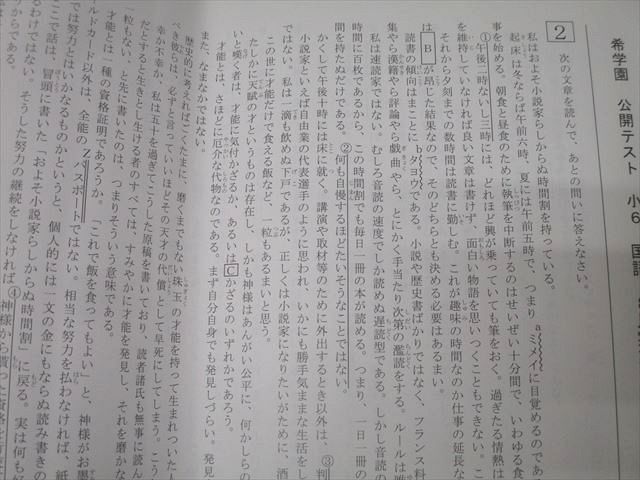 希学園 公開テスト 小6 国語
2 次の文章を読んで、あとの問いに答えなさい。
私はおよそ小説家らしからぬ時間割を持っている。
起床は冬ならば午前六時、夏には午前五時で、つまりaミメイに目覚めるのであ
事を始める。朝食と昼食のために執筆を中断するのはせいぜい十分間で、いわゆる食
①午後二時ないし三時には、どれほど興が乗っていても筆をおく。過ぎたる情熱は
を維持していなければ良い文章は書けず、面白い物語を思いつくこともできない。こ
それから夕刻までの数時間は読書に勤しむ。これが趣味の時間なのか仕事の延長な
は B が昂じた結果なので、そのどちらとも決める必要はあるまい。
読書の傾向はまことにbタヨウである。小説や歴史書ばかりではなく、フランス料
集やら漢籍やら評論やら戯曲やら、とにかく手当たり次第の濫読をする。ルールは唯
私は速読家ではない。むしろ音読の速度でしか読めぬ遅読型である。しかし音読の
時間に百枚であるから、この時間割でも毎日一冊の本が読める。つまり、一日一冊の
間を持たぬだけである。②何も自慢するほどたいそうなことではない。
かくして午後十時には床に就く。講演や取材等のために外出するとき以外は、③判
小説家といえば自由業の代表選手のように思われ、いかにも勝手気ままな生活をし
ではない。私は一滴も飲めぬ下戸であるが、正しくは小説家になりたいがために、酒
この世に才能だけで食える飯など、一粒もあるまいと思う。
たしかに天賦の才というものは存在し、しかも神様はあんがい公平に、何かしらの
いと嘆く者は、才能に気付かざるか、あるいは C かざるのいずれかであろう。
才能とは、さほどに厄介な代物なのである。まず自分自身でも発見しづらい。発見
また、なまなかではない。
歴史的に考えればごくたまに、磨くまでもない珠玉の才能を持って生まれついた人
べき彼らは、必ずと言っていいほどその天才の代償として早死にしてしまう。こう
幸か不幸か、私は五十を過ぎてこうした原稿を書いており、読者諸氏も無事に読んで
だとすると生きとし生ける者のすべては、すみやかに才能を発見し、それを磨かな
一粒もない、と先に書いたのは、つまりそういう意味である。
才能とは一種の資格証明であろうか。「これで飯を食ってもよい」と、神様がお墨
ルドカード以外は、全能のZパスポートではない。相当な努力を払わなければ、紙
では努力とはいかなるものかというと、個人的には一文の金にもならぬ読み書きの
ここで話は、冒頭に書いた「およそ小説家らしからぬ時間割」に戻る。実は何も好
るわけではない。そうした努力の継続をしなければ、④神様から貰った資格を
うからである。